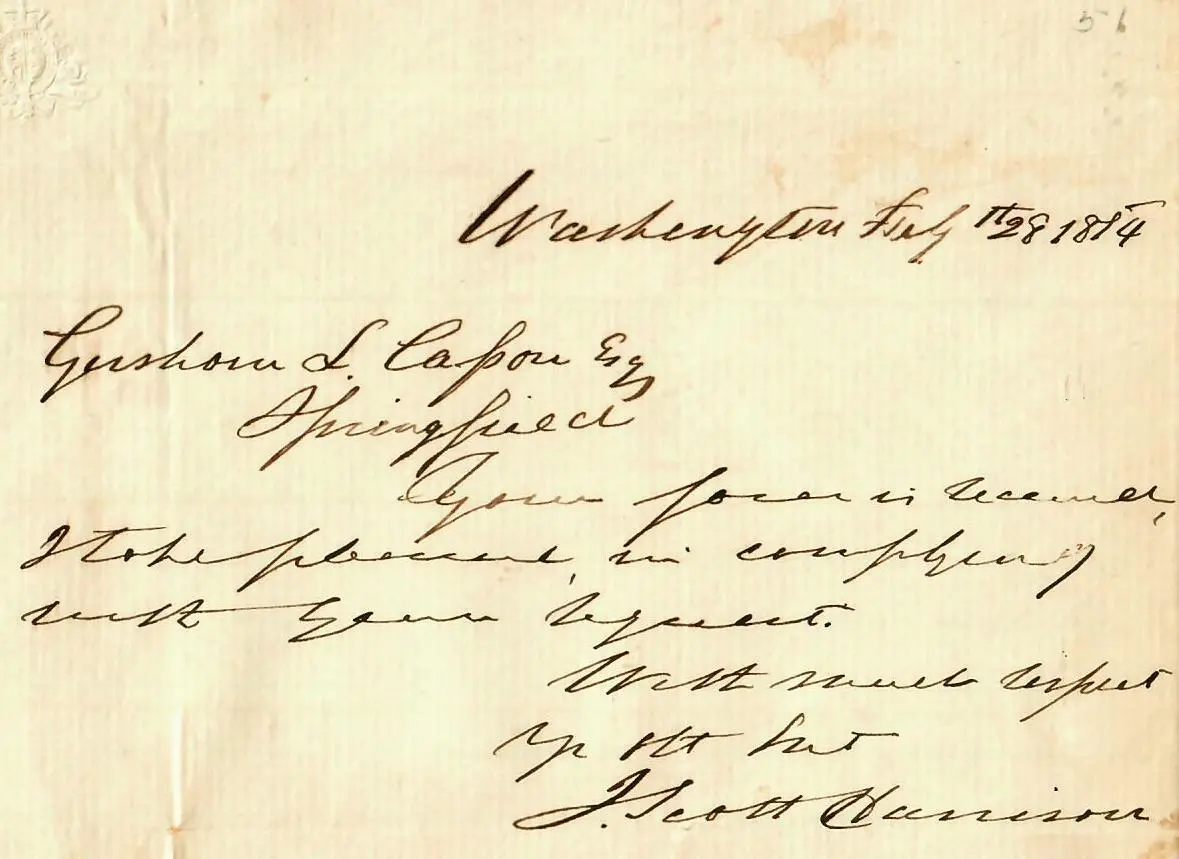 56
Washington Feby 28th 1854
Gershom L. Capon Esq
Springfield
Your favor is received,
I take pleasure, in complying
with your request.
With much respect
Yr Obt Svt
J. Scott Harrison